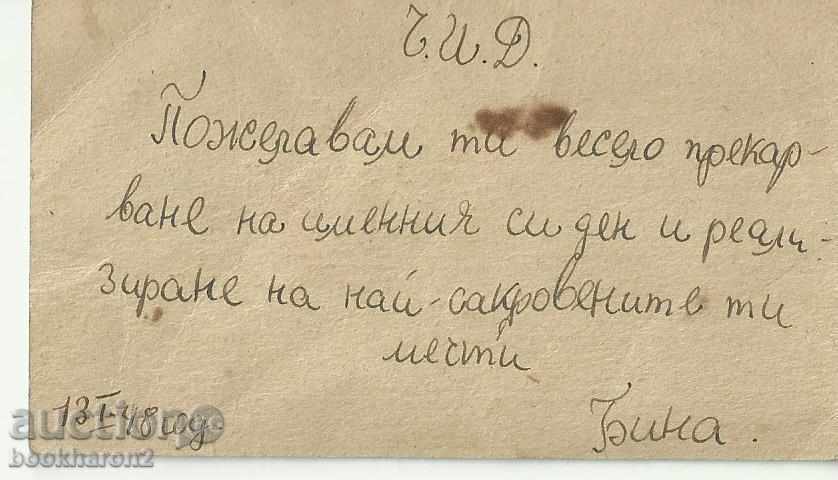 Ч.И.Д.
Пожелавам ти весело прекар-
ване на имення си ден и реали-
зиране на най-сакровените ти
мечти
13 I-48 год.
Бина.
auction
bookharon2